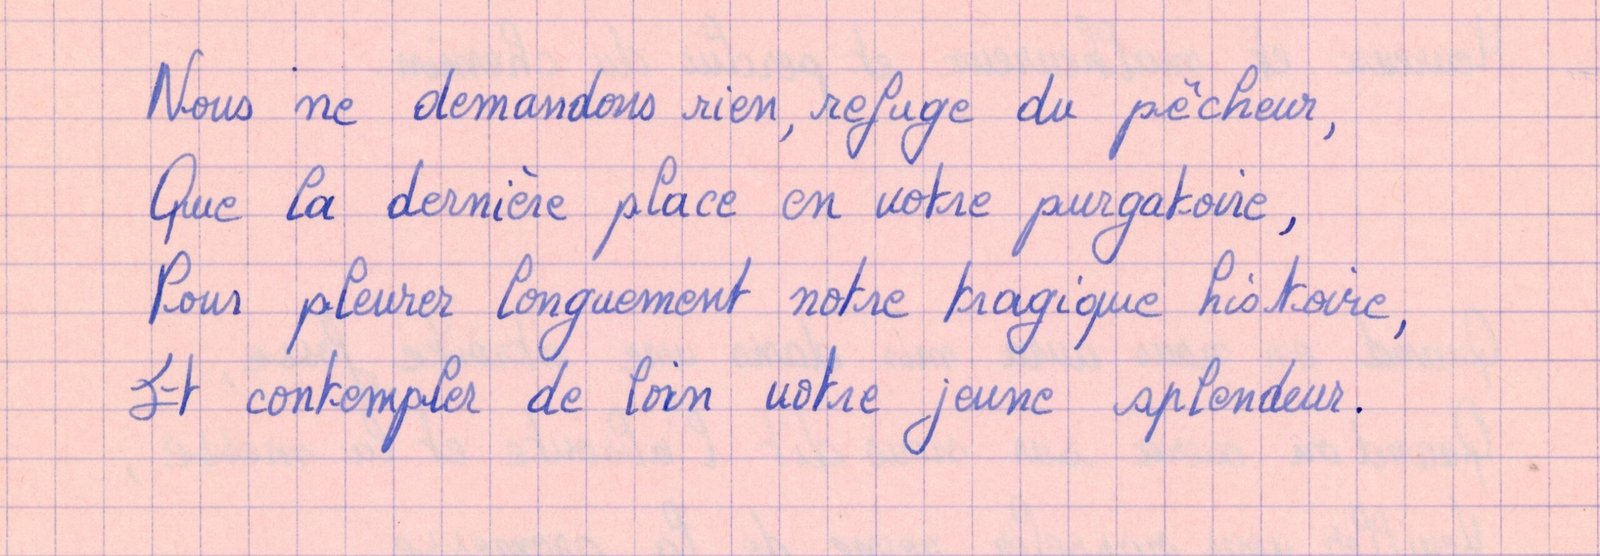 Nous ne demandons rien, refuge du pêcheur,
Que la dernière place en votre purgatoire,
Pour pleurer longuement notre tragique histoire,
Et contempler de loin votre jeune splendeur.